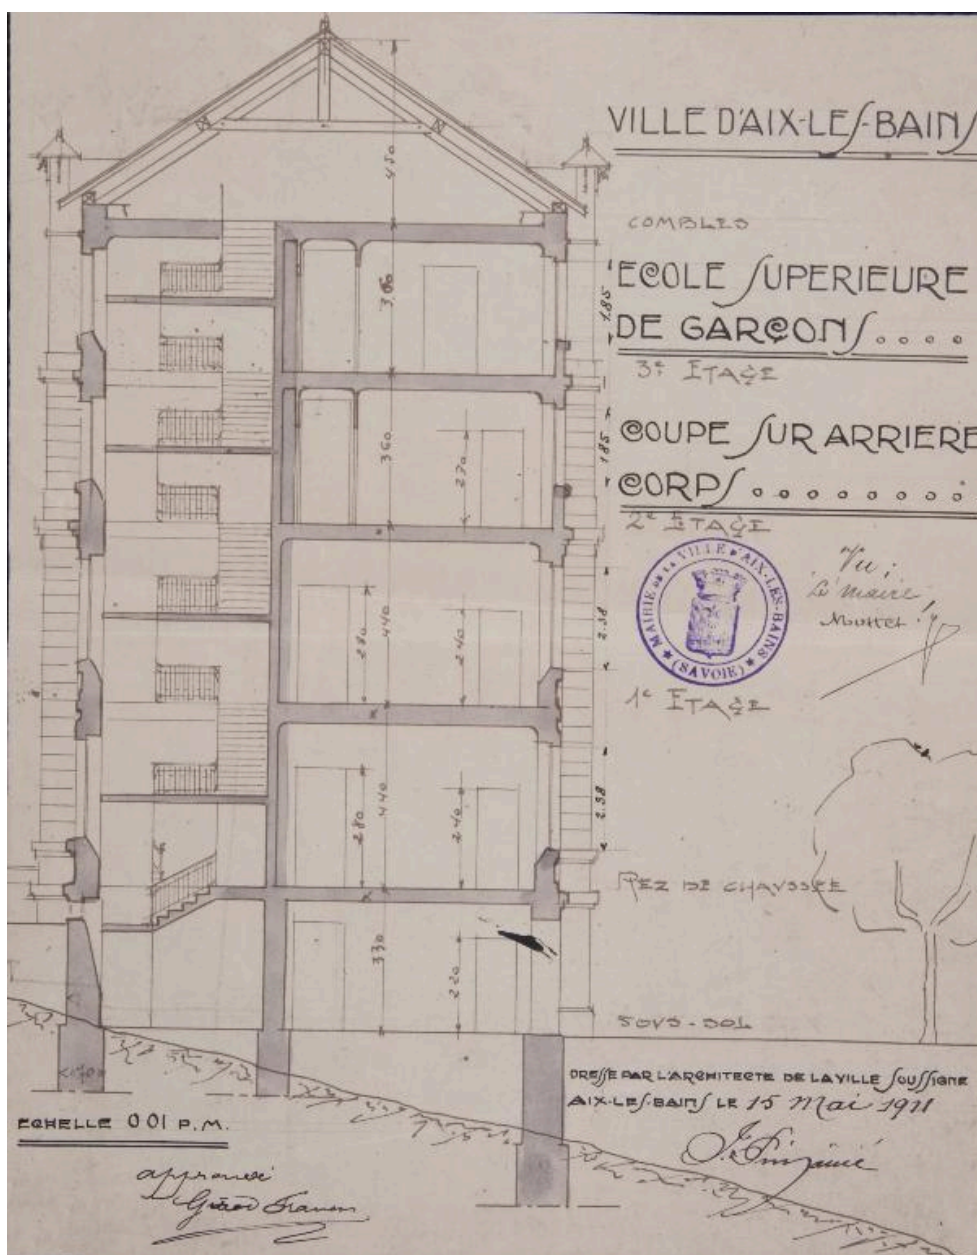 VILLE D'AIX-LES-BAINS
COMBLES
ECOLE SUPERIEURE
DE GARÇONS....
3e ETAGE
COUPE SUR ARRIERE
CORPS.........
2e ETAGE
MAIRIE DE LA VILLE D'AIX-LES-BAINS
(SAVOIE)
Vu :
Le Maire,
Mottet
1e ETAGE
REZ DE CHAUSSEE
SOUS-SOL
DRESSE PAR L'ARCHITECTE DE LA VILLE SOUSSIGNE
AIX-LES-BAINS LE 15 Mai 1911
ECHELLE 0 01 P.M.
approuvé
450
360
1.85
360
270
1.85
280
440
240
2.38
280
440
240
2.38
330
220